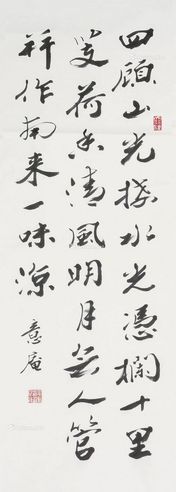 四顾山光接水光憑欄十里
芰荷香清風明月无人管
并作南来一味凉
意庵